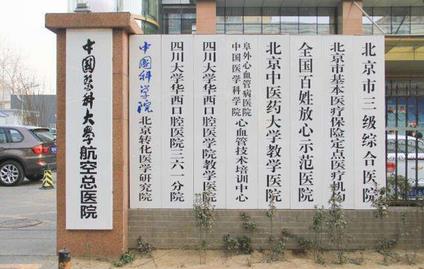 中国医科大学航空总医院
中国科学院北京转化医学研究院
四川大学华西口腔医院三六一分院
四川大学华西口腔医院教学医院
阜外心血管病医院
中国医学科学院心血管技术培训中心
北京中医药大学教学医院
全国百姓放心示范医院
北京市基本医疗保险定点医疗机构
北京市三级综合医院